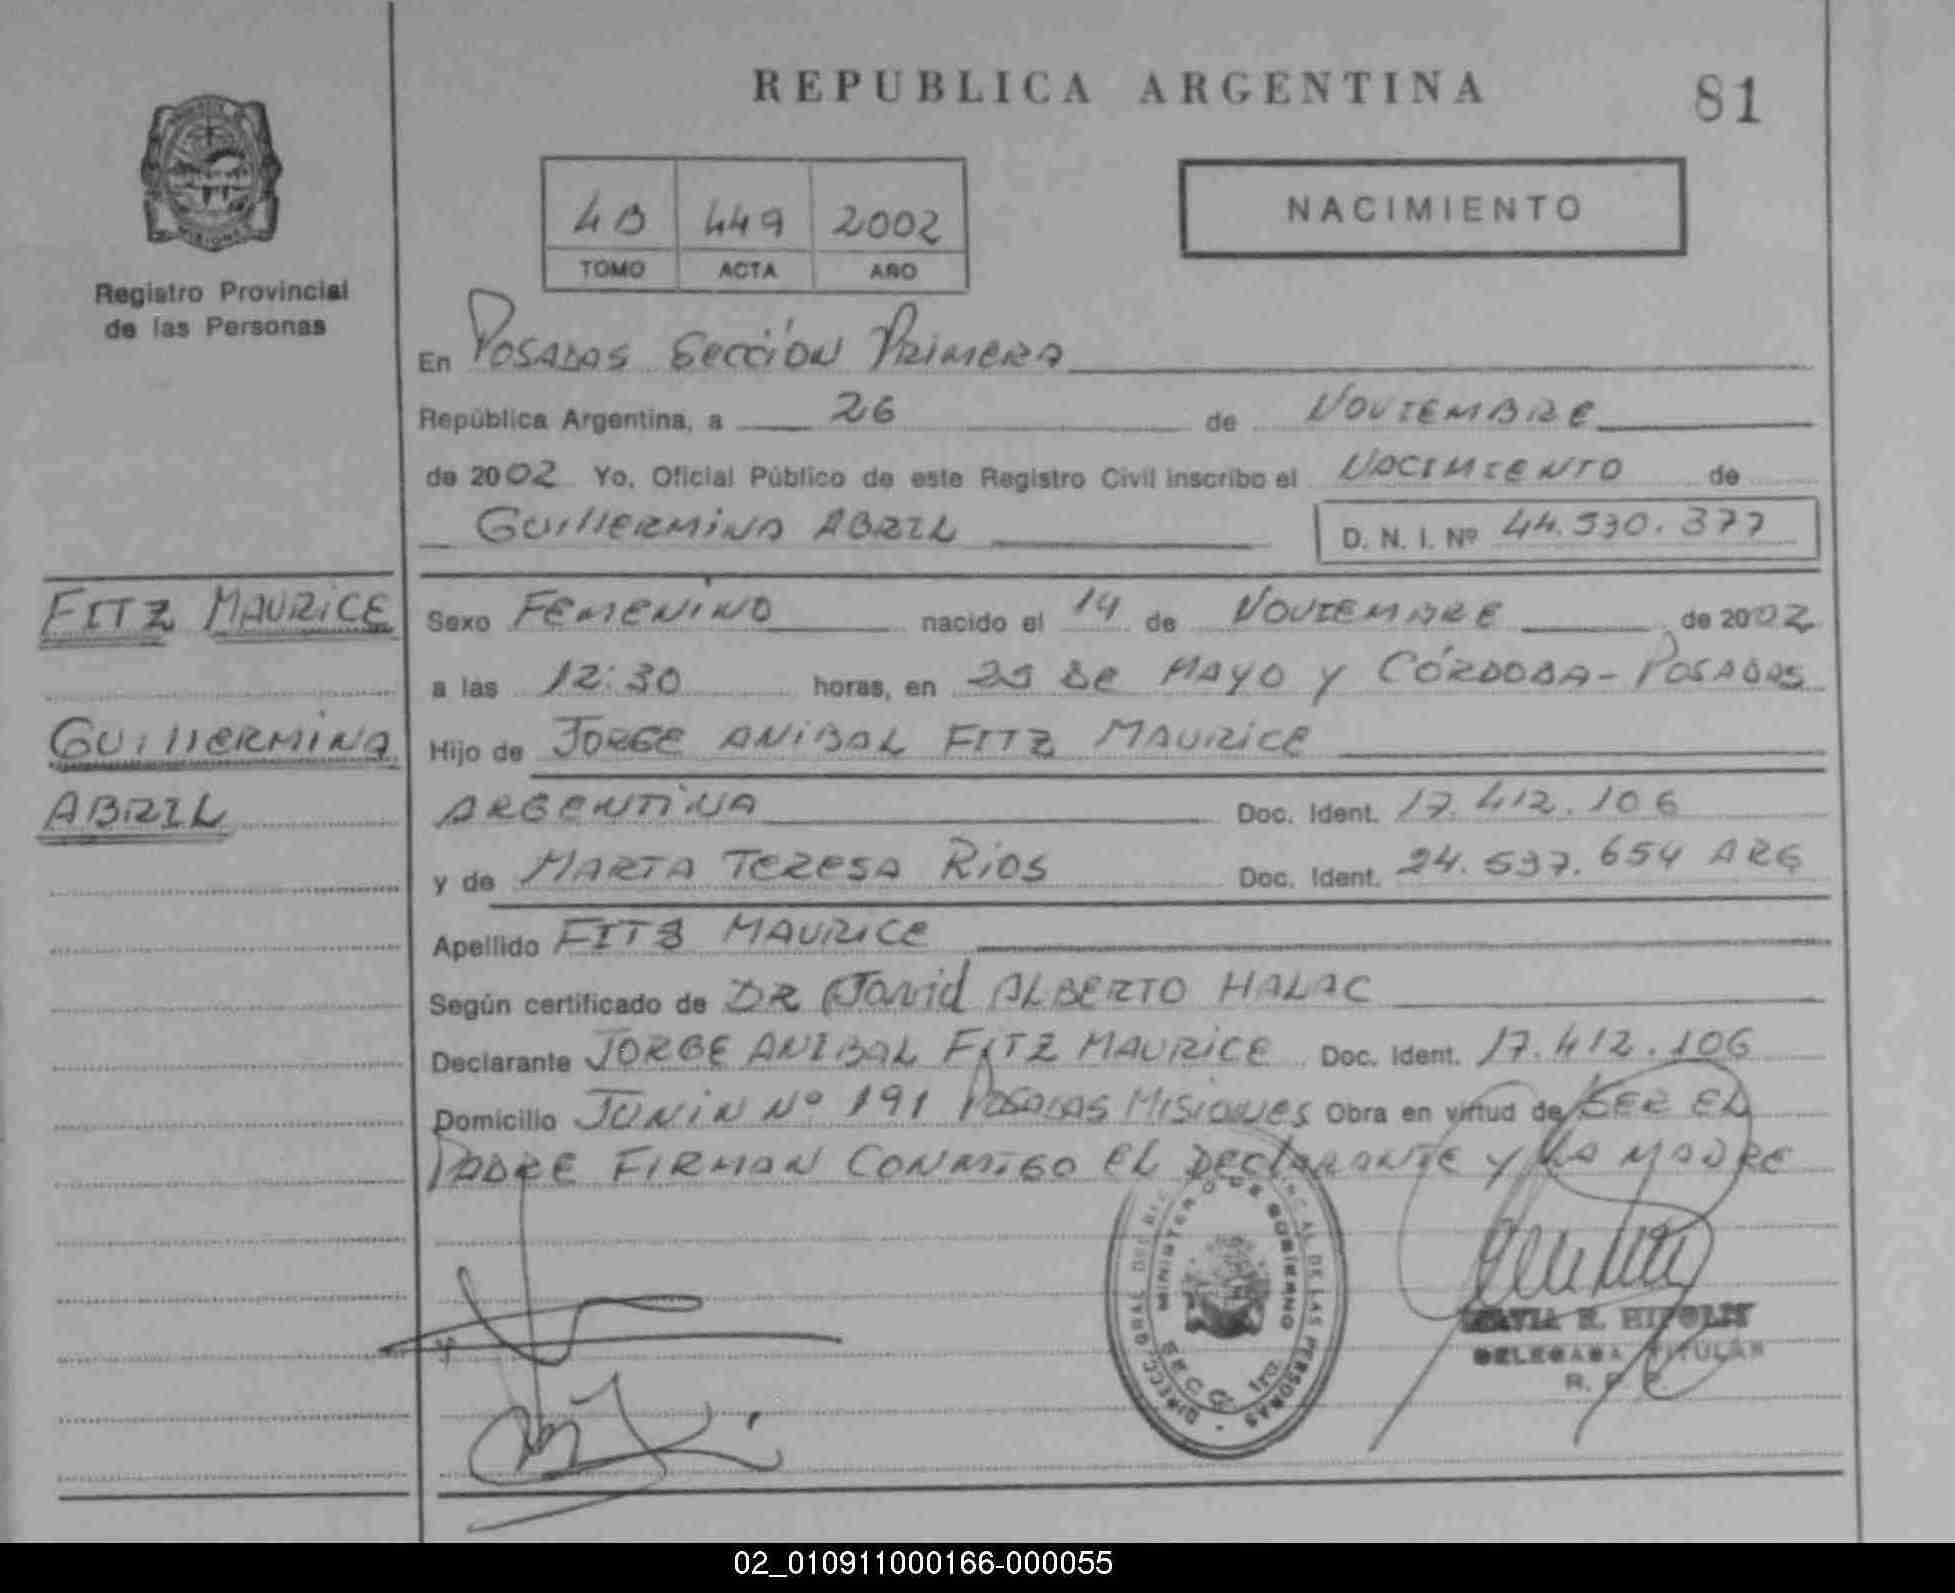 REPUBLICA ARGENTINA
81
4B 449 2002
TOMO ACTA AÑO
NACIMIENTO
Registro Provincial
de las Personas
En POSADAS SECCIÓN PRIMERA
República Argentina, a 26 de NOVIEMBRE
de 2002 Yo, Oficial Público de este Registro Civil inscribo el NACIMIENTO de
GUILLERMINA ABRIL D. N. I. Nº 44.530.377
FITZ MAURICE
GUILLERMINA
ABRIL
Sexo FEMENINO nacido el 14 de NOVIEMBRE de 2002
a las 12:30 horas, en 25 DE MAYO Y CÓRDOBA - POSADAS
Hijo de JORGE ANIBAL FITZ MAURICE
ARGENTINA Doc. Ident. 17.412.106
y de MARTA TERESA RIOS Doc. Ident. 24.537.654 ARG
Apellido FITZ MAURICE
Según certificado de DR David ALBERTO HALAC
Declarante JORGE ANIBAL FITZ MAURICE Doc. Ident. 17.412.106
Domicilio JUNIN Nº 191 POSADAS MISIONES Obra en virtud de SER EL
PADRE FIRMAN CONMIGO EL DECLARANTE Y LA MADRE
MINISTERIO DE GOBIERNO
DELEGADA TITULAR
R. P. P.
02_010911000166-000055